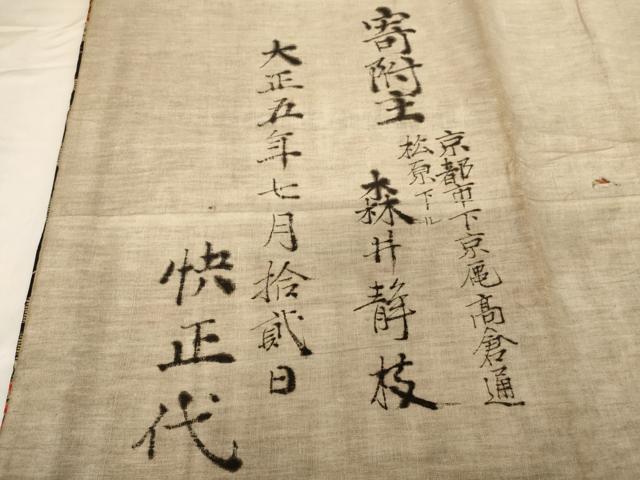 寄附主
京都市下京區高倉通
松原下ル
森井靜枝
大正五年七月拾貳日
快正代